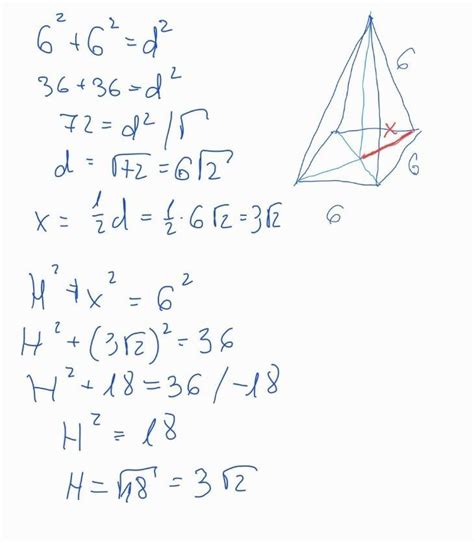 6² + 6² = d²
36 + 36 = d²
72 = d² /√
d = √72 = 6√2
x = 1/2 d = 1/2 · 6√2 = 3√2
H² + x² = 6²
H² + (3√2)² = 36
H² + 18 = 36 / -18
H² = 18
H = √18 = 3√2
6
x
6
6